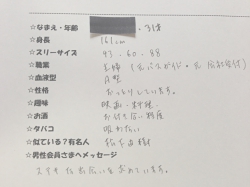 ☆なまえ・年齢 31才
☆身長 161cm
☆スリーサイズ 93・60・88
☆職業 主婦(元バスガイド・元会社受付)
☆血液型 A型
☆性格 おっとりしています。
☆趣味 映画・料理
☆お酒 お付き合い程度
☆タバコ 吸わない
☆似ている?有名人
☆男性会員さまへメッセージ
ステキな出会いを求めています。